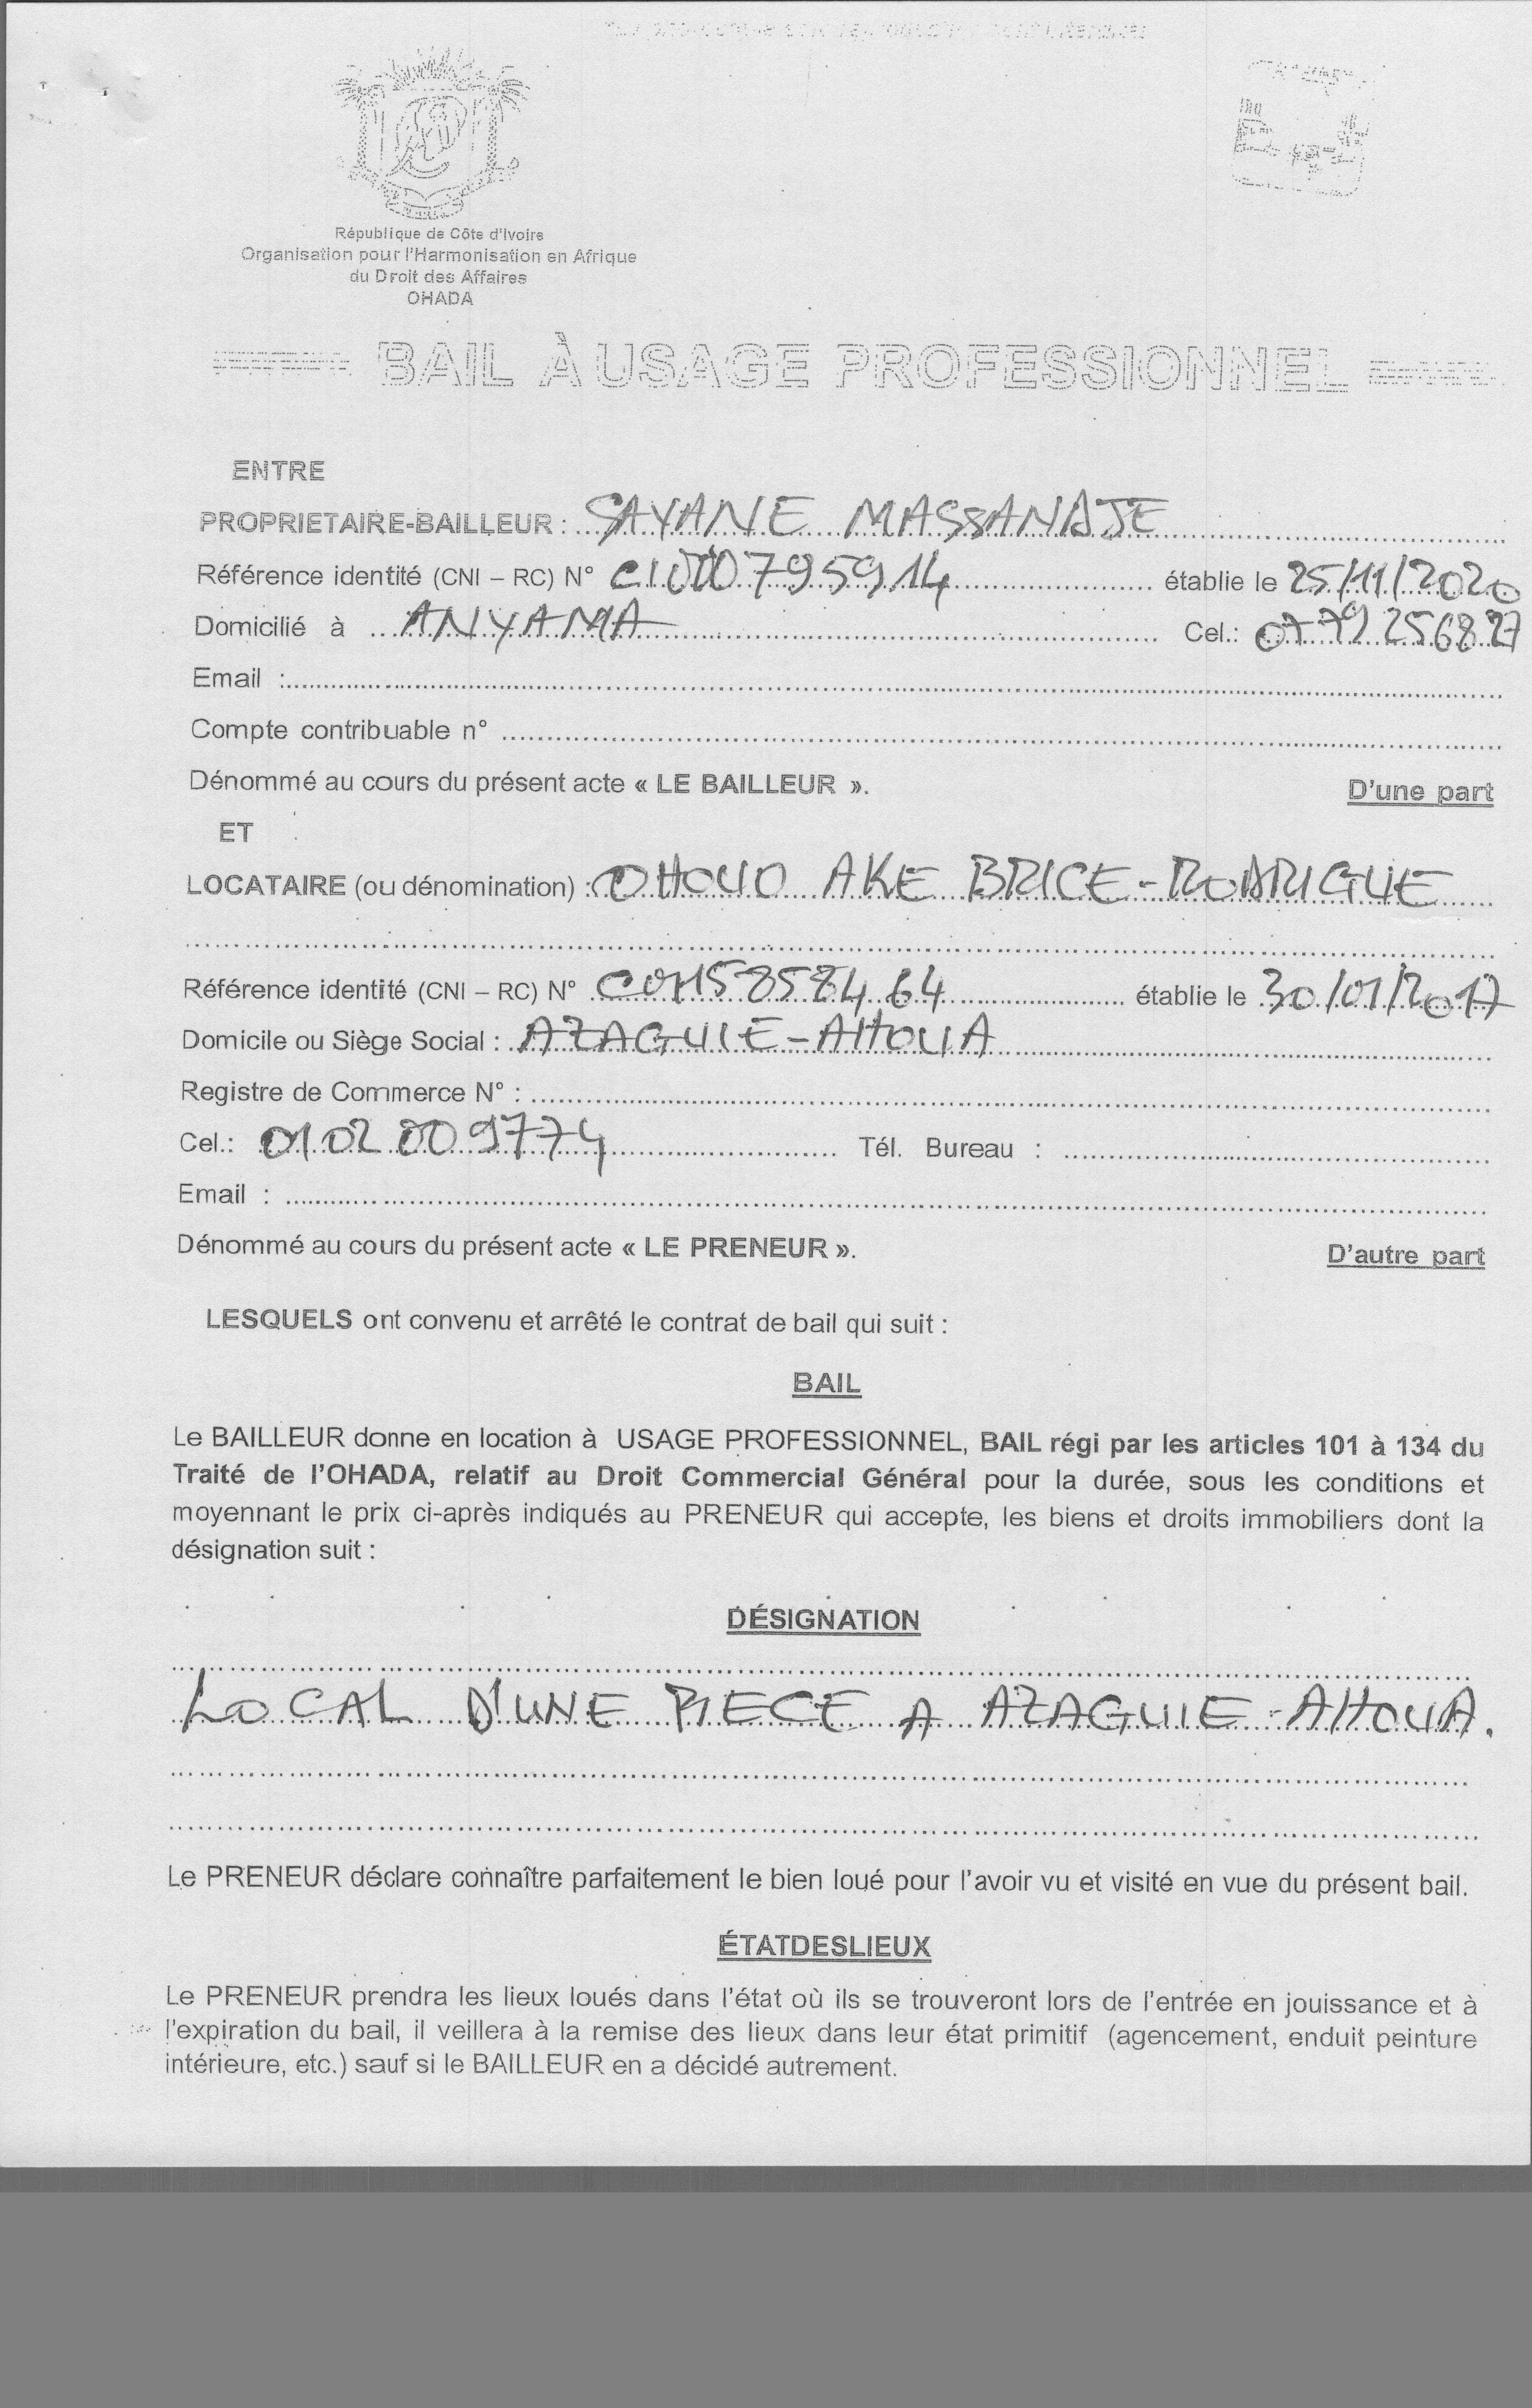 République de Côte d'Ivoire
Organisation pour l'Harmonisation en Afrique
du Droit des Affaires
OHADA
BAIL À USAGE PROFESSIONNEL
ENTRE
PROPRIETAIRE-BAILLEUR : SAYANE MASSANDJE
Référence identité (CNI – RC) N° CI000795914 établie le 25/11/2020
Domicilié à ANYAMA Cel.: 0779256827
Email :
Compte contribuable n°
Dénommé au cours du présent acte « LE BAILLEUR ». D'une part
ET
LOCATAIRE (ou dénomination) : OHOUO AKE BRICE-RODRIGUE
Référence identité (CNI – RC) N° C0115858464 établie le 30/01/2017
Domicile ou Siège Social : AZAGUIE-AHOUA
Registre de Commerce N° :
Cel.: 01 02 00 9774 Tél. Bureau :
Email :
Dénommé au cours du présent acte « LE PRENEUR ». D'autre part
LESQUELS ont convenu et arrêté le contrat de bail qui suit :
BAIL
Le BAILLEUR donne en location à USAGE PROFESSIONNEL, BAIL régi par les articles 101 à 134 du
Traité de l'OHADA, relatif au Droit Commercial Général pour la durée, sous les conditions et
moyennant le prix ci-après indiqués au PRENEUR qui accepte, les biens et droits immobiliers dont la
désignation suit :
DÉSIGNATION
LOCAL D'UNE PIECE A AZAGUIE-AHOUA.
Le PRENEUR déclare connaître parfaitement le bien loué pour l'avoir vu et visité en vue du présent bail.
ÉTATDESLIEUX
Le PRENEUR prendra les lieux loués dans l'état où ils se trouveront lors de l'entrée en jouissance et à
l'expiration du bail, il veillera à la remise des lieux dans leur état primitif (agencement, enduit peinture
intérieure, etc.) sauf si le BAILLEUR en a décidé autrement.